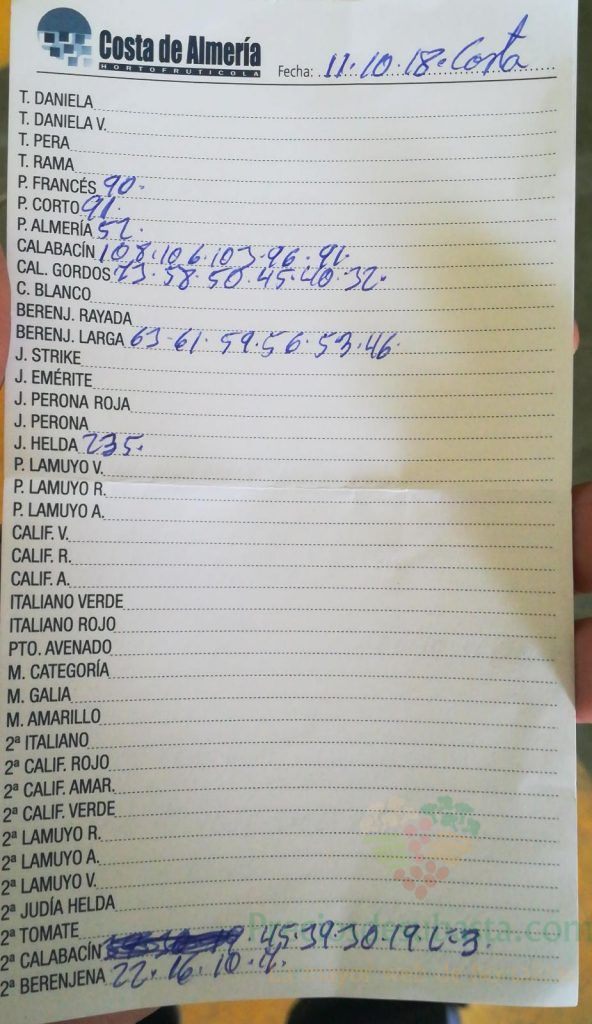 Costa de Almería
HORTOFRUTICOLA
Fecha: 11·10·18· Costa
T. DANIELA
T. DANIELA V.
T. PERA
T. RAMA
P. FRANCÉS 90·
P. CORTO 91·
P. ALMERÍA 52·
CALABACÍN 108·106·103·96·91·
CAL. GORDOS 73·58·50·45·40·32·
C. BLANCO
BERENJ. RAYADA
BERENJ. LARGA 63·61·59·56·53·46·
J. STRIKE
J. EMÉRITE
J. PERONA ROJA
J. PERONA
J. HELDA 235·
P. LAMUYO V.
P. LAMUYO R.
P. LAMUYO A.
CALIF. V.
CALIF. R.
CALIF. A.
ITALIANO VERDE
ITALIANO ROJO
PTO. AVENADO
M. CATEGORÍA
M. GALIA
M. AMARILLO
2ª ITALIANO
2ª CALIF. ROJO
2ª CALIF. AMAR.
2ª CALIF. VERDE
2ª LAMUYO R.
2ª LAMUYO A.
2ª LAMUYO V.
2ª JUDÍA HELDA
2ª TOMATE
2ª CALABACÍN 45·39·30·19
2ª BERENJENA 22·16·10·
Preciosdesubasta.com